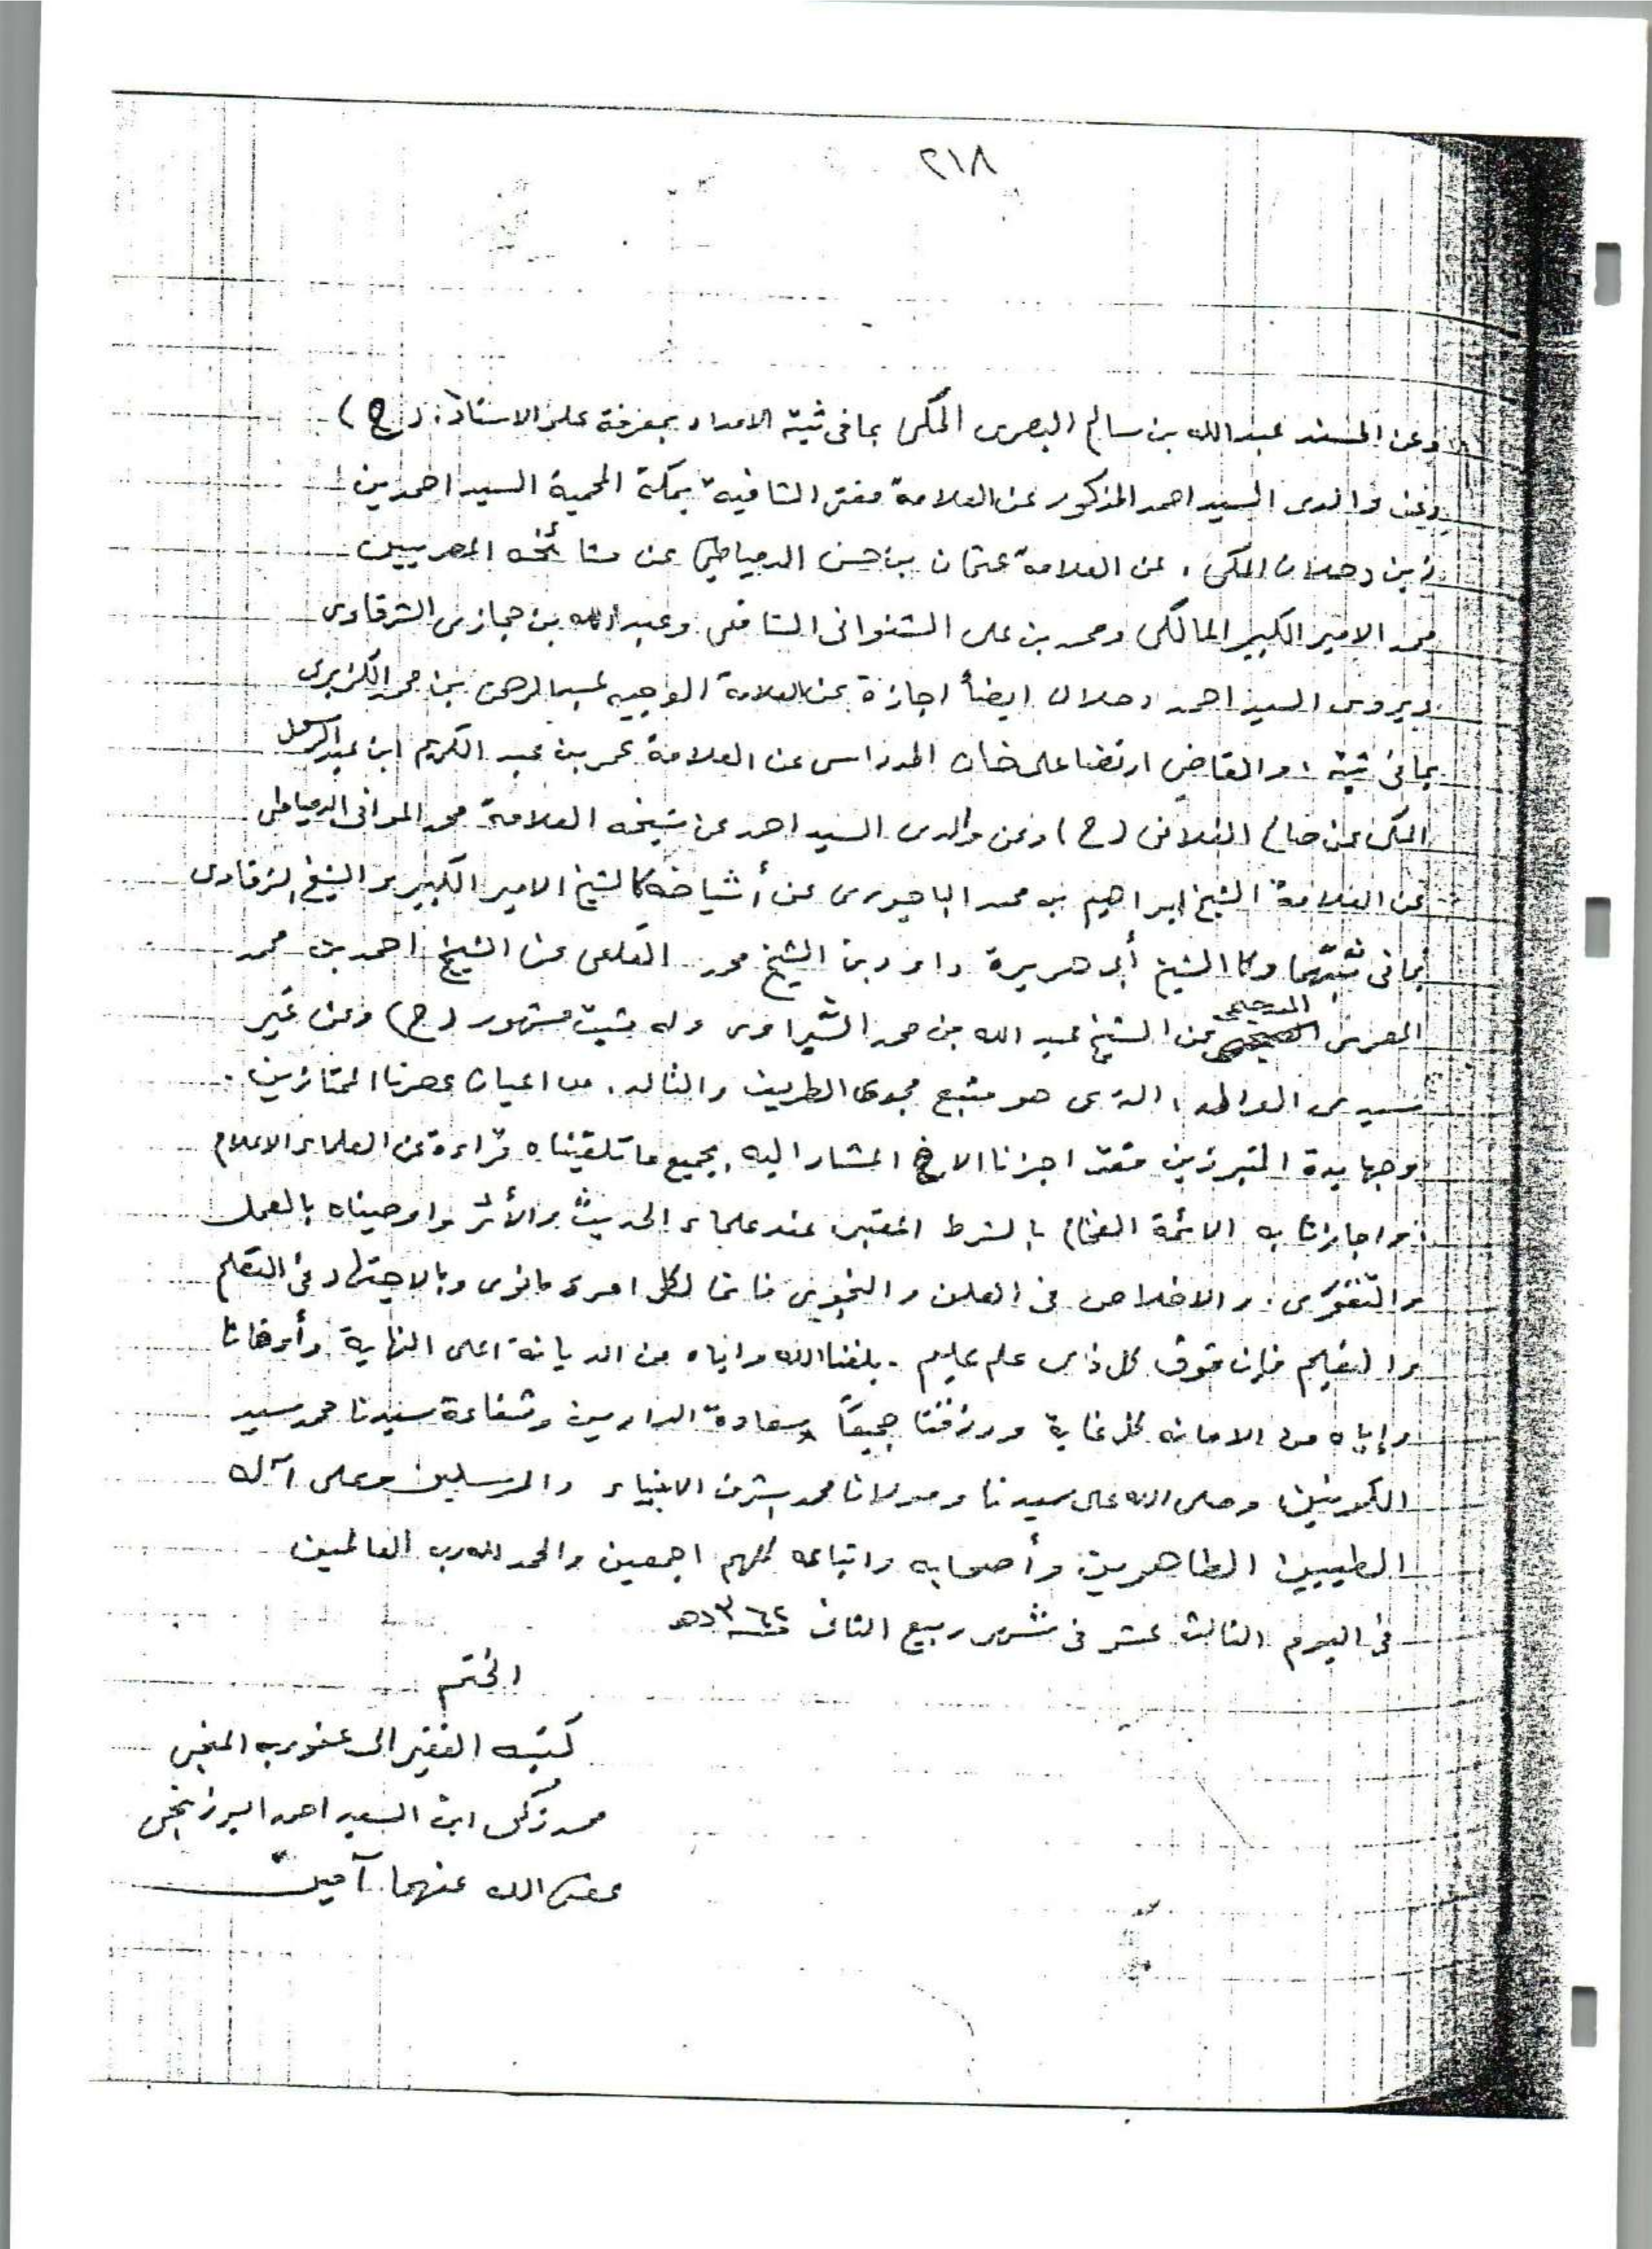 ٢١٨
وعن المسند عبد الله بن سالم البصرى المكى بما فى ثبته الامداد بمعرفة علو الاسناد. (ح)
وعن والدى السيد احمد المذكور عن العلامة مفتى الشافية بمكة المحمية السيد احمد بن
زين دحلان المكى، عن العلامة عثمان بن حسن الدمياطى عن مشائخه المصريين
محمد الامير الكبير المالكى ومحمد بن على الشنوانى الشافعى وعبد الله بن حجازى الشرقاوى
ويروى السيد احمد دحلان ايضاً اجازة عن العلامة الوجيه عبد الرحمن بن محمد الكزبرى
بما فى ثبته، والقاضى ارتضا على خان المدراسى عن العلامة عمر بن عبد الكريم ابن عبد الرسول
المكى عن صالح الفلانى (ح) وعن والدى السيد احمد عن شيخه العلامة محمد الموافى الدمياطى
عن العلامة الشيخ ابراهيم بن محمد الباجورى عن أشياخه كالشيخ الامير الكبير والشيخ الشرقاوى
بما فى ثبتهما وكالشيخ أبى هريرة داود بن الشيخ محمد القلعى عن الشيخ احمد بن محمد
المصرى عن الشيخ عبد الله بن محمد الشبراوى وله ثبت مشهور (ح) وعن غير
سيدى الوالد، الذى هو متبع مجدى الطريف والتالد. من اعيان عصرنا الممتازين.
وجهابدة المتبرزين فقد اجزنا الاخ المشار اليه بجميع ما تلقيناه قراءة عن العلماء الاعلام
واجازنا به الائمة الفخام بالشرط المعتبر عند علماء الحديث والأثر واوصيناه بالعمل
والتقوى، والاخلاص فى العلن والنجوى فانما لكل امرىء مانوى وبالاجتهاد فى التعلم
والتعليم فإن فوق كل ذى علم عليم. بلغنا الله واياه من الديانة اعلى النهاية وأوفانا
وإياه من الامانة كل غاية ورزقنا جميعاً سعادة الدارين وشفاعة سيدنا محمد سيد
الكونين، وصلى الله على سيدنا ومولانا محمد اشرف الانبياء والمرسلين وعلى آله
الطيبين الطاهرين وأصحابه واتباعه كلهم اجمعين والحمد لله رب العالمين
فى اليوم الثالث عشر فى شهر ربيع الثانى ١٣٦٢هـ
الختم
كتبه الفقير الى عفو ربه المنجى
محمد زكى ابن السيد احمد البرزنجى
عفى الله عنهما آمين